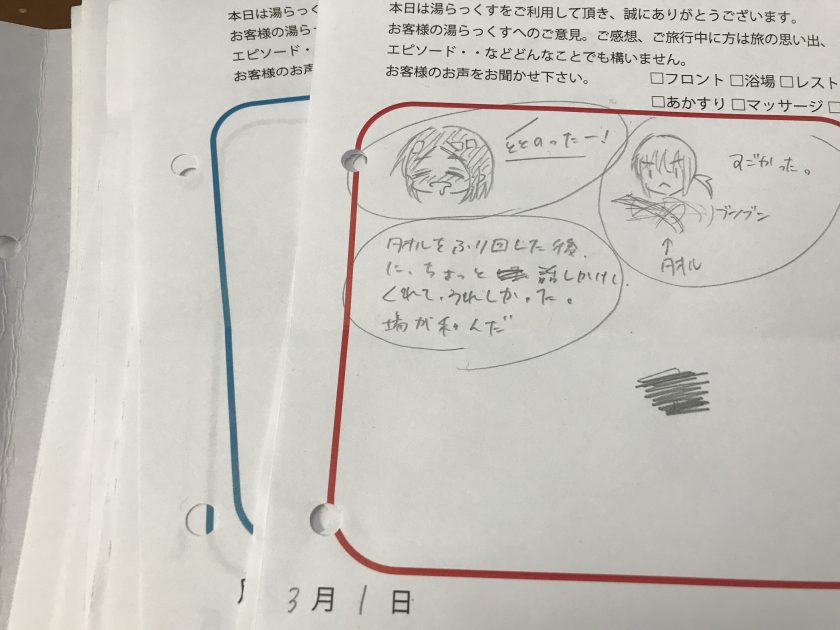 本日は湯らっくすをご利用して頂き、誠にありがとうございます。
お客様の湯らっくすへのご意見。ご感想、ご旅行中に方は旅の思い出、
エピソード・・などどんなことでも構いません。
お客様のお声をお聞かせ下さい。
□フロント □浴場 □レスト
□あかすり □マッサージ □
ととのったー!
すごかった。
ブンブン
↑
タオル
タオルをふり回した後
に、ちょっと 話しかけ
くれて、うれしかった。
場が和んだ
3月1日
本日は湯らっく
お客様の湯ら
エピソード・・
お客様のお声